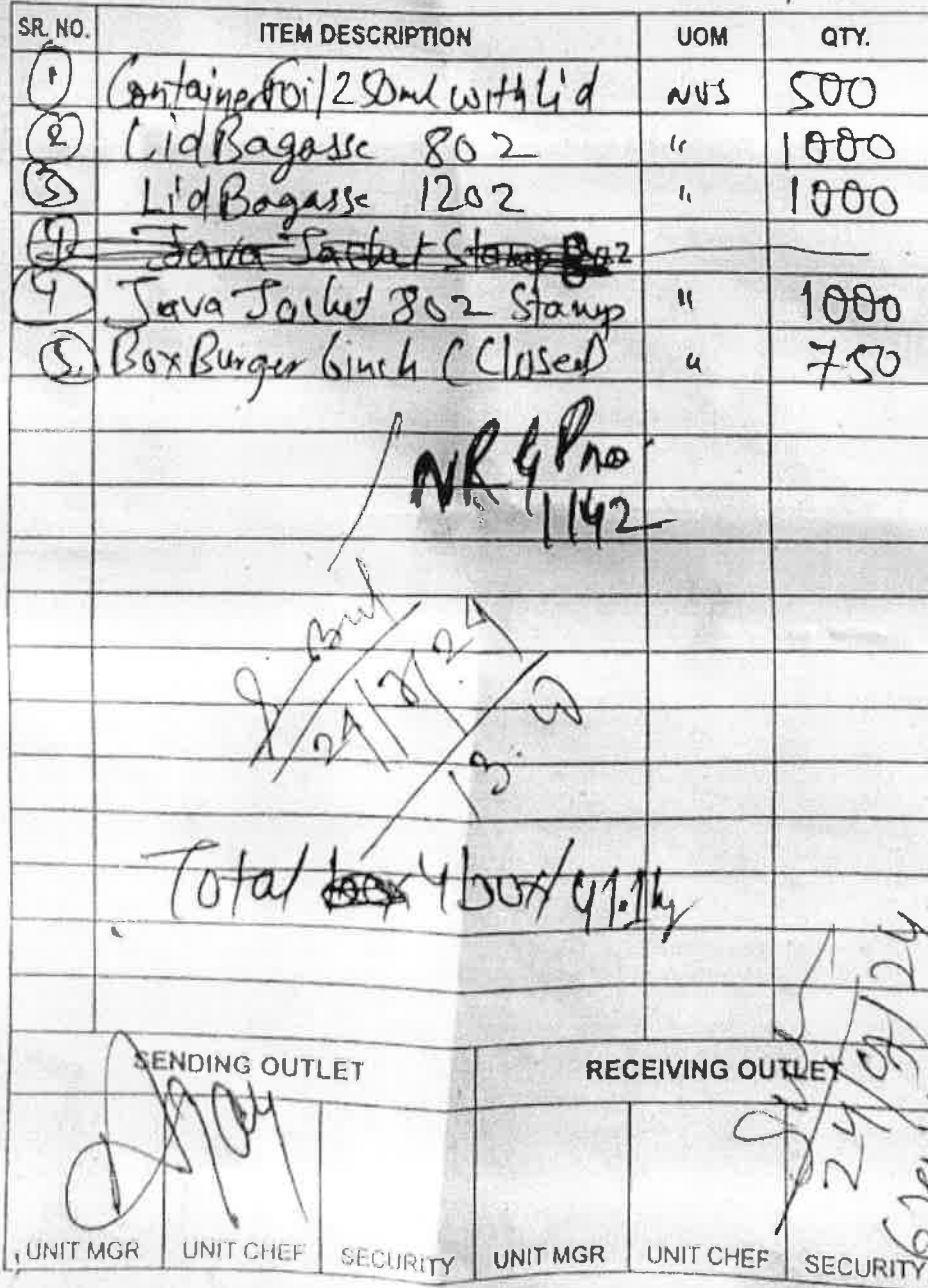 SR. NO. ITEM DESCRIPTION UOM QTY.
1 Container Foil 250ml with Lid NOS 500
2 Lid Bagasse 8oz " 1000
3 Lid Bagasse 12oz " 1000
4 Java Jacket Stamp 8oz
4 Java Jacket 8oz Stamp " 1000
5. Box Burger 6inch (Closed) " 750
NRGP no
1142
Total 4 box/ 41.1kg
24/
SENDING OUTLET RECEIVING OUTLET
UNIT MGR UNIT CHEF SECURITY UNIT MGR UNIT CHEF SECURITY